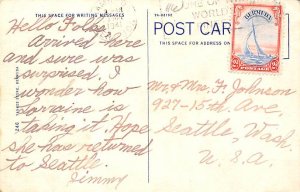 THIS SPACE FOR WRITING MESSAGES
POST CARD
THIS SPACE FOR ADDRESS ON
BERMUDA
POSTAGE
Hello Folks,
Arrived here
and sure was
surprised. I
wonder how
Lorraine is
taking it. Hope
she has returned
to Seattle.
Jimmy
Mr. & Mrs. F. Johnson
927-15th Ave.
Seattle, Wash.
U.S.A.